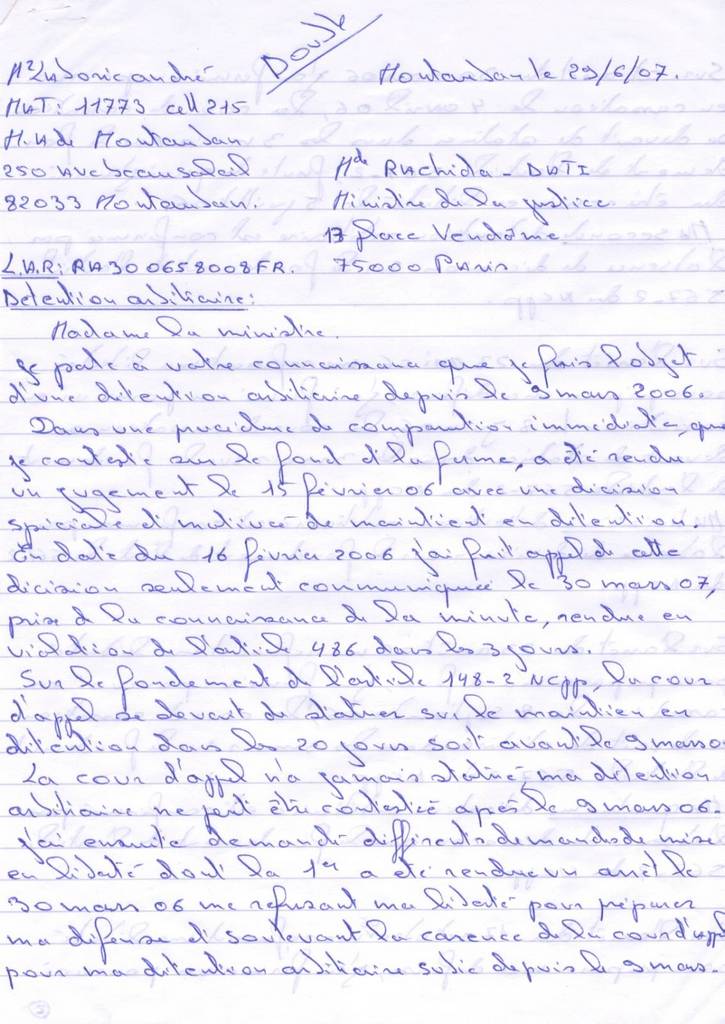 Double
Mr Laboric andré Montauban le 29/6/07.
MAT: 11773 cell 215
M.A de Montauban
250 Av beausoleil Mde RAchida - DATI
82033 Montauban. Ministre de la justice
13 place Vendôme
L.A.R: RA 30 065 8008 FR. 75000 Paris
Detention arbitraire:
Madame la ministre.
Je porte à votre connaissance que je fais l'objet
d'une détention arbitraire depuis le 9 mars 2006.
Dans une procédure de comparution immédiate, que
je conteste sur le fond et la forme, a été rendu
un jugement le 15 février 06 avec une décision
spéciale et motivée de maintient en détention.
En date du 16 février 2006 j'ai fait appel de cette
décision seulement communiquée le 30 mars 07,
prise à la connaissance de la minute, rendue en
violation de l'article 486 dans les 3 jours.
Sur le fondement de l'article 148-2 NCPP, la cour
d'appel se devait de statuer sur le maintien en
détention dans les 20 jours soit avant le 9 mars 0
La cour d'appel n'a jamais statué, ma détention
arbitraire ne peut être contestée après le 9 mars 06.
j'ai ensuite demandé différents demandes de mise
en liberté dont la 1er a été rendue un arrêt le
30 mars 06 me refusant ma liberté pour préparer
ma défense et soulevant la carence de la cour d'appel
pour ma détention arbitraire subie depuis le 9 mars.